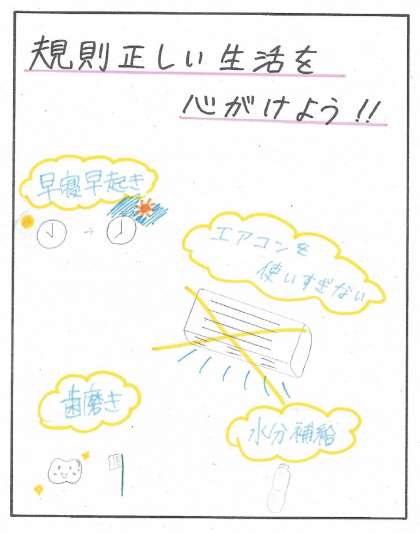 規則正しい生活を
心がけよう!!
早寝早起き
エアコンを
使いすぎない
歯磨き
水分補給